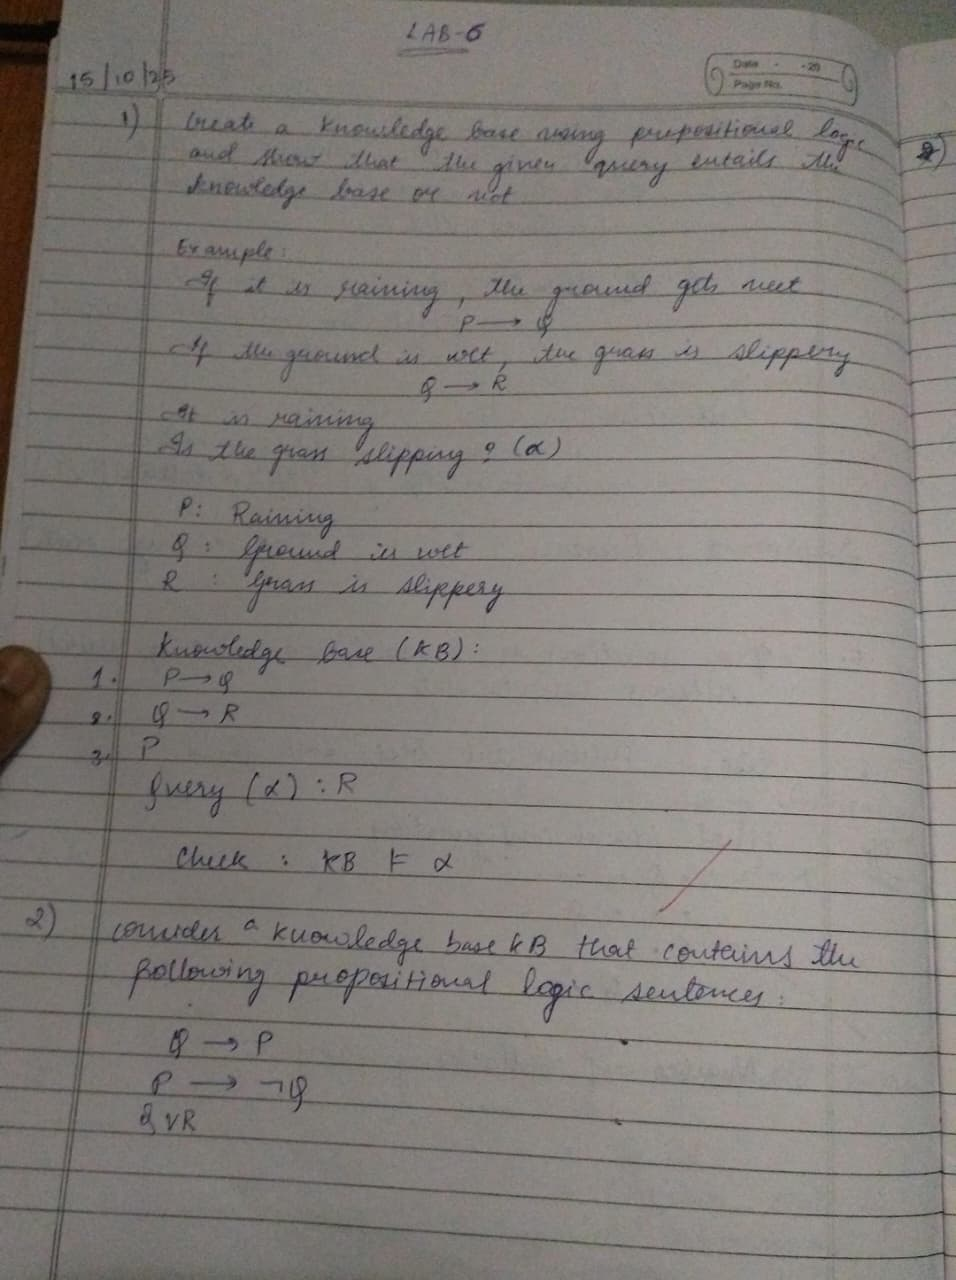 LAB-6
Date - -20
Page No.
15/10/25
1) Create a knowledge base using prepositional logic
and show that the given query entails the
knowledge base or not
Example:
If it is raining, the ground gets wet
P → Q
If the ground is wet, the grass is slippery
Q → R
It is raining
Is the grass slipping? (α)
P: Raining
Q: Ground is wet
R: Grass is slippery
Knowledge base (KB):
1. P → Q
2. Q → R
3. P
Query (α) : R
Check : KB ⊨ α
2) Consider a knowledge base KB that contains the
following propositional logic sentences:
Q → P
P → ¬Q
Q ∨ R